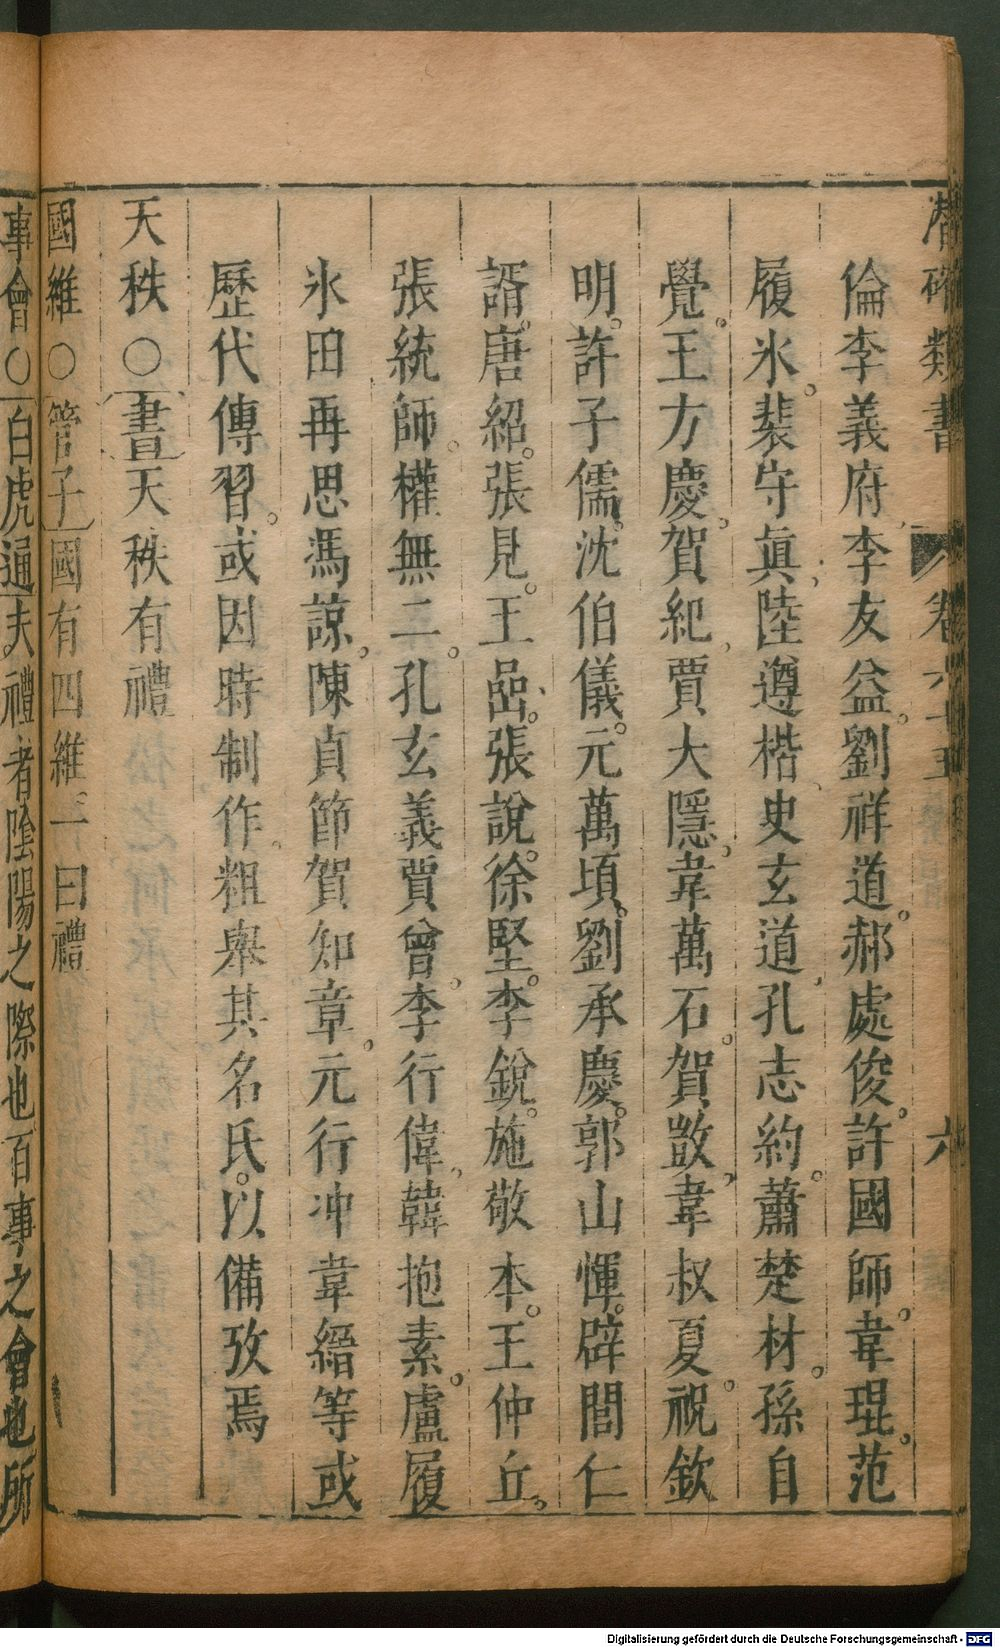 潛確類書 卷六十五 六
倫李義府李友益。劉祥道。郝處俊。許國師。韋琨。范
履氷。裴守眞、陸遵楷、史玄道、孔志約。蕭楚材。孫自
覺。王方慶。賀紀、賈大隱、韋萬石。賀敳、韋叔夏。祝欽
明。許子儒。沈伯儀。元萬頃。劉承慶。郭山惲。辟閭仁
諝。唐紹。張見。王嵒。張說。徐堅。李銳。施敬本。王仲丘。
張統師。權無二。孔玄義賈曾、李行偉、韓抱素。盧履
氷田再思馮諒、陳貞節賀知章。元行冲韋縚等或
歷代傳習。或因時制作。粗舉其名氏。以備攷焉
天秩○書天秩有禮
國維○管子國有四維一曰禮
事會○白虎通夫禮者陰陽之際也百事之會也所
Digitalisierung gefördert durch die Deutsche Forschungsgemeinschaft - DFG